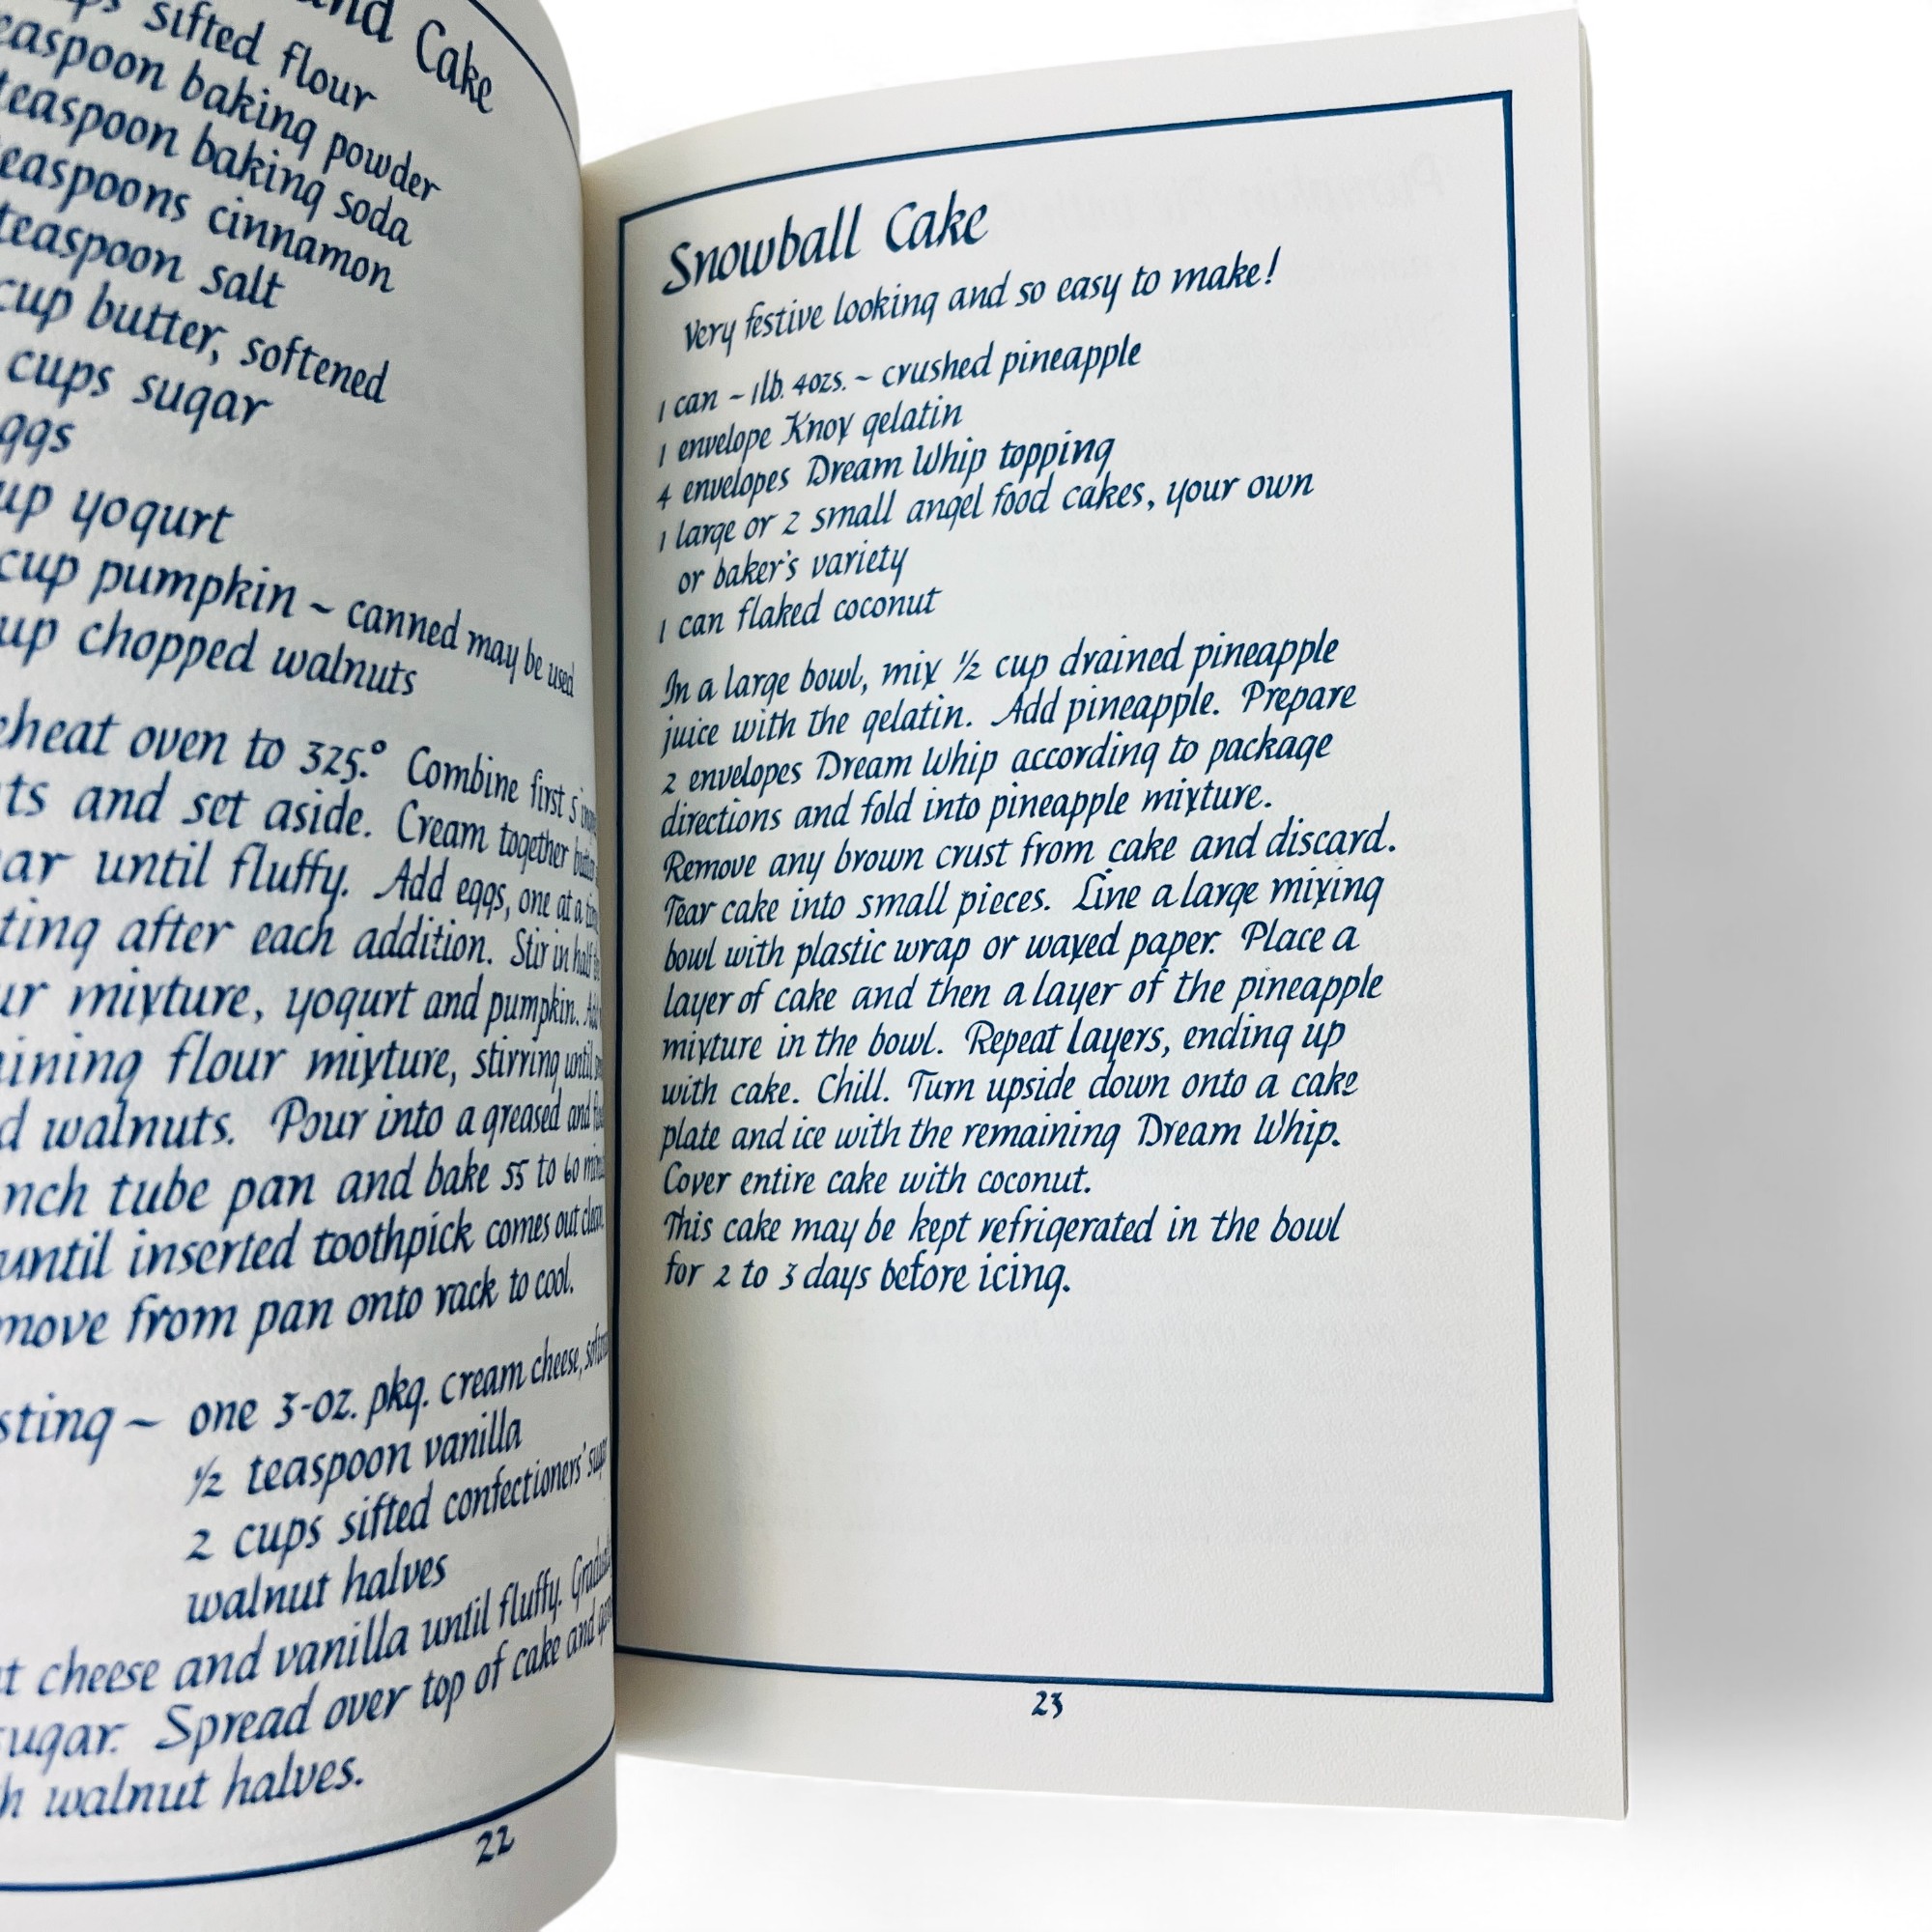 and Cake
sifted flour
teaspoon baking powder
teaspoon baking soda
teaspoons cinnamon
teaspoon salt
cup butter, softened
cups sugar
eggs
cup yogurt
cup pumpkin ~ canned may be used
cup chopped walnuts
oven to 325.° Combine first 5
and set aside. Cream together
until fluffy. Add eggs, one at a
after each addition. Stir in half
mixture, yogurt and pumpkin.
flour mixture, stirring until
walnuts. Pour into a greased and
tube pan and bake 55 to 60
until inserted toothpick comes out clean.
from pan onto rack to cool.
~ one 3-oz. pkg. cream cheese,
½ teaspoon vanilla
2 cups sifted confectioners'
walnut halves
cheese and vanilla until fluffy.
sugar. Spread over top of cake and
walnut halves.
22
Snowball Cake
Very festive looking and so easy to make!
1 can ~ 1lb. 4ozs. ~ crushed pineapple
1 envelope Knox gelatin
4 envelopes Dream Whip topping
1 large or 2 small angel food cakes, your own
or baker's variety
1 can flaked coconut
In a large bowl, mix ½ cup drained pineapple
juice with the gelatin. Add pineapple. Prepare
2 envelopes Dream Whip according to package
directions and fold into pineapple mixture.
Remove any brown crust from cake and discard.
Tear cake into small pieces. Line a large mixing
bowl with plastic wrap or waxed paper. Place a
layer of cake and then a layer of the pineapple
mixture in the bowl. Repeat layers, ending up
with cake. Chill. Turn upside down onto a cake
plate and ice with the remaining Dream Whip.
Cover entire cake with coconut.
This cake may be kept refrigerated in the bowl
for 2 to 3 days before icing.
23